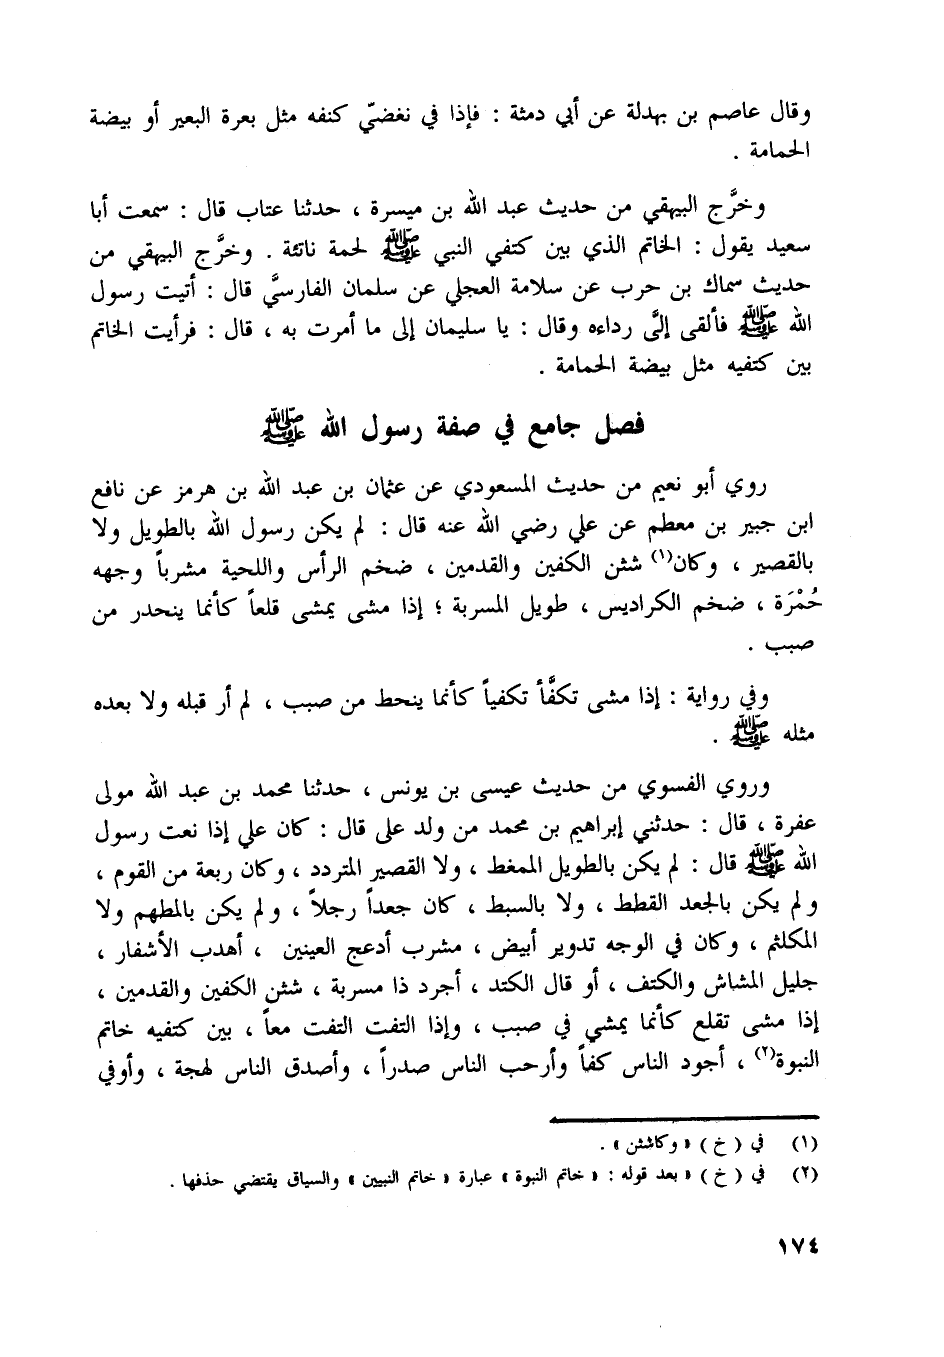 وقال عاصم بن بهدلة عن أبي دمثة : فإذا في نغضيّ كنفه مثل بعرة البعير أو بيضة
الحمامة .
وخرَّج البيهقي من حديث عبد الله بن ميسرة ، حدثنا عتاب قال : سمعت أبا
سعيد يقول : الخاتم الذي بين كتفي النبي ﷺ لحمة ناتئة . وخرَّج البيهقي من
حديث سماك بن حرب عن سلامة العجلي عن سلمان الفارسيَّ قال : أتيت رسول
الله ﷺ فألقى إلَّى رداءه وقال : يا سليمان إلى ما أمرت به ، قال : فرأيت الخاتم
بين كتفيه مثل بيضة الحمامة .
فصل جامع في صفة رسول الله ﷺ
روي أبو نعيم من حديث المسعودي عن عثمان بن عبد الله بن هرمز عن نافع
ابن جبير بن معطم عن علي رضي الله عنه قال : لم يكن رسول الله بالطويل ولا
بالقصير ، وكان(١) شثن الكفين والقدمين ، ضخم الرأس واللحية مشرباً وجهه
حُمْرَة ، ضخم الكراديس ، طويل المسربة ؛ إذا مشى يمشى قلعاً كأنما ينحدر من
صبب .
وفي رواية : إذا مشى تكفَّأ تكفياً كأنما ينحط من صبب ، لم أر قبله ولا بعده
مثله ﷺ .
وروي الفسوي من حديث عيسى بن يونس ، حدثنا محمد بن عبد الله مولى
عفرة ، قال : حدثني إبراهيم بن محمد من ولد على قال : كان علي إذا نعت رسول
الله ﷺ قال : لم يكن بالطويل الممغط ، ولا القصير المتردد ، وكان ربعة من القوم ،
ولم يكن بالجعد القطط ، ولا بالسبط ، كان جعداً رجلاً ، ولم يكن بالمطهم ولا
المكلثم ، وكان في الوجه تدوير أبيض ، مشرب أدعج العينين ، أهدب الأشفار ،
جليل المشاش والكتف ، أو قال الكتد ، أجرد ذا مسربة ، شثن الكفين والقدمين ،
إذا مشى تقلع كأنما يمشي في صبب ، وإذا التفت التفت معاً ، بين كتفيه خاتم
النبوة(٢) ، أجود الناس كفاً وأرحب الناس صدراً ، وأصدق الناس لهجة ، وأوفي
(١) في ( خ ) « وكاشثن » .
(٢) في ( خ ) « بعد قوله : « خاتم النبوة » عبارة « خاتم النبيين » والسياق يقتضي حذفها .
١٧٤